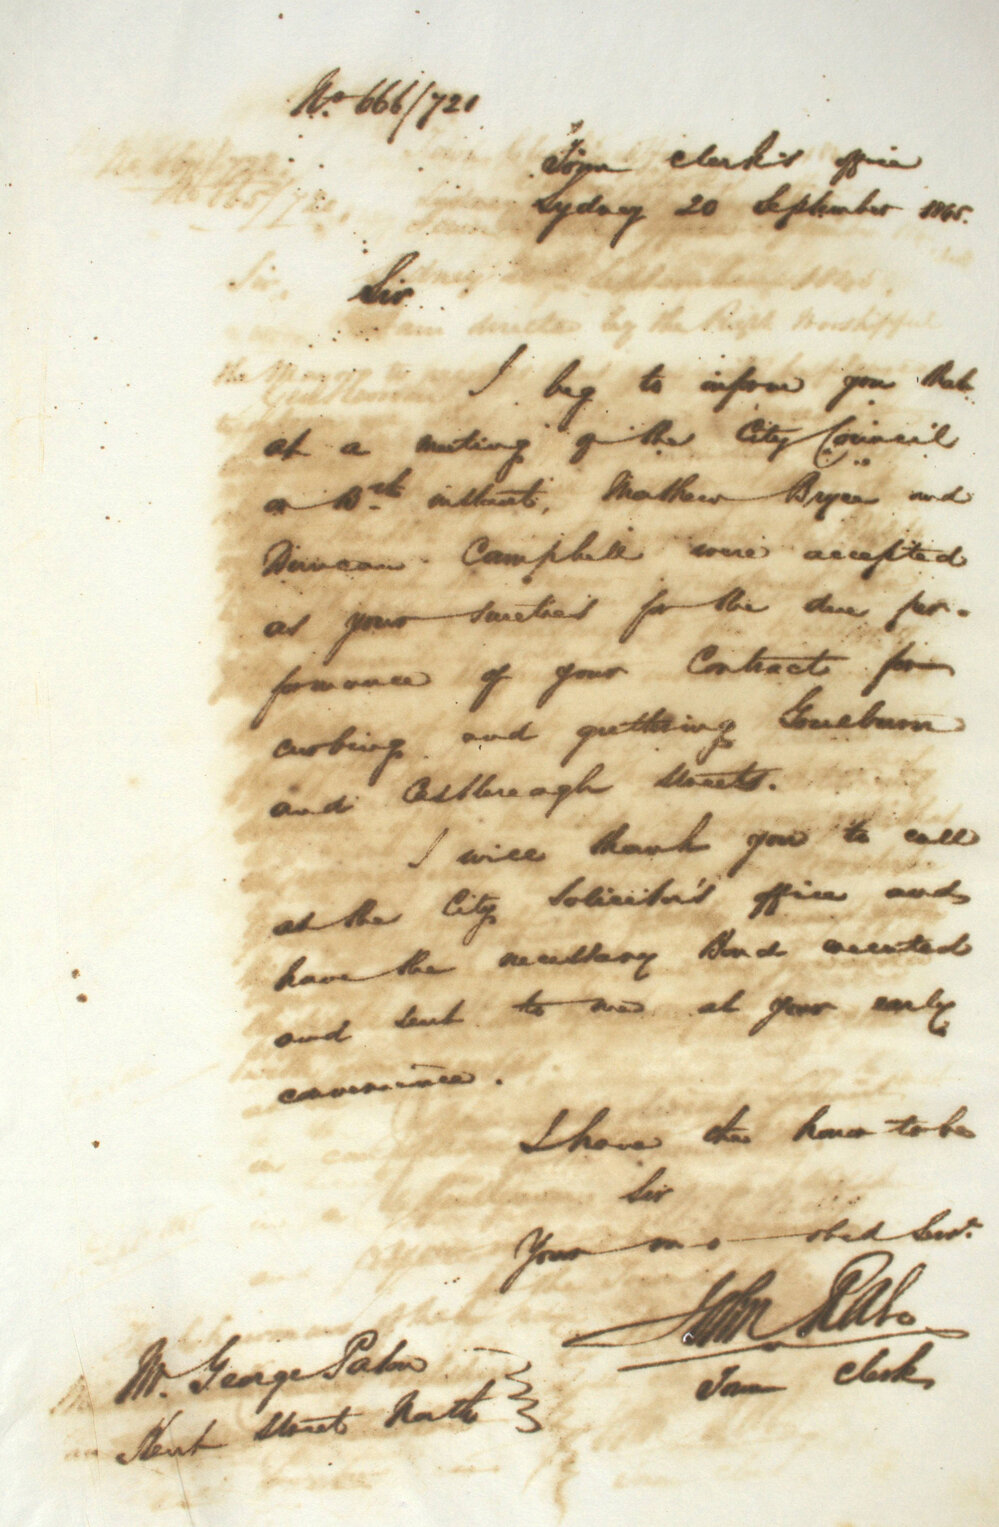 No. 666/721
Town Clerk's office
Sydney 20 September 1865.
Sir
I beg to inform you that
at a meeting of the City Council
on instant, Mathew Bryce and
Duncan Campbell were accepted
as your sureties for the due per-
formance of your Contract for
curbing and guttering Goulburn
and Castlereagh Streets.
I will thank you to call
at the City Solicitor's office and
have the necessary Bond executed
and sent to me at your early
convenience.
I have the honor to be
Sir
Your mo obed Servt.
John Rae
Town Clerk
Mr. George Paton
Kent Street North